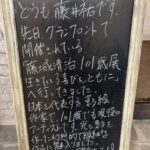 どうも、藤井裕です。
先日、グランフロントで
開催されている
藤城清治101歳展
生きている喜びとともに
へ行ってきました。
日本を代表する影絵
作家で、101歳でも現役の
アーティストです。光と影を
使った幻想的で